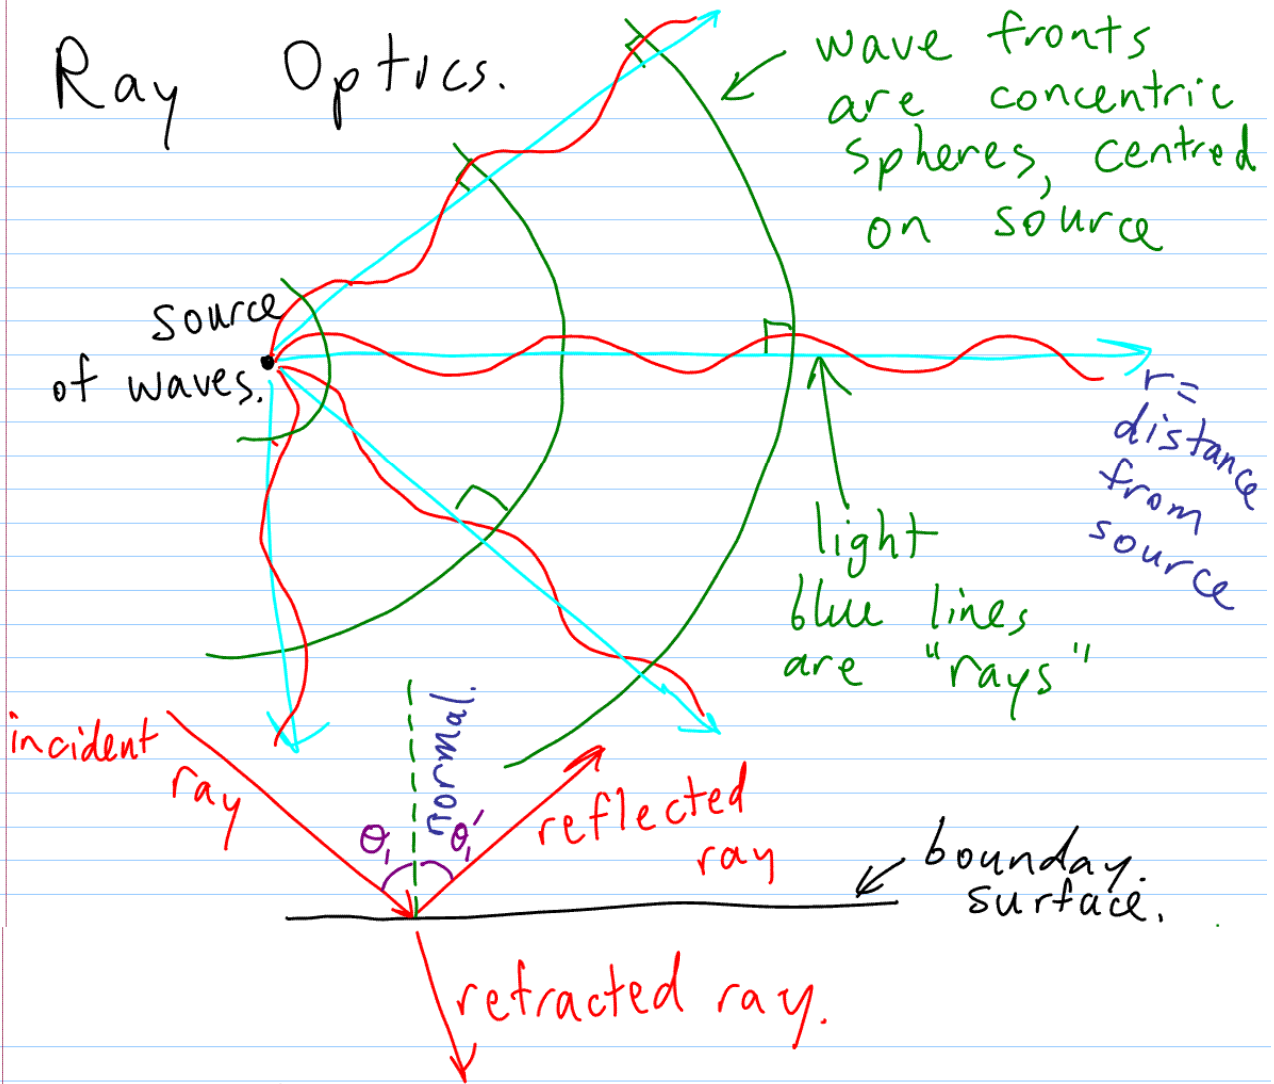 Ray Optics.
wave fronts
are concentric
spheres, centred
on source
source
of waves.
r =
distance
from
source
light
blue lines
are "rays"
incident
ray
normal.
θ₁
θ₁′
reflected
ray
bounday.
surface.
refracted ray.